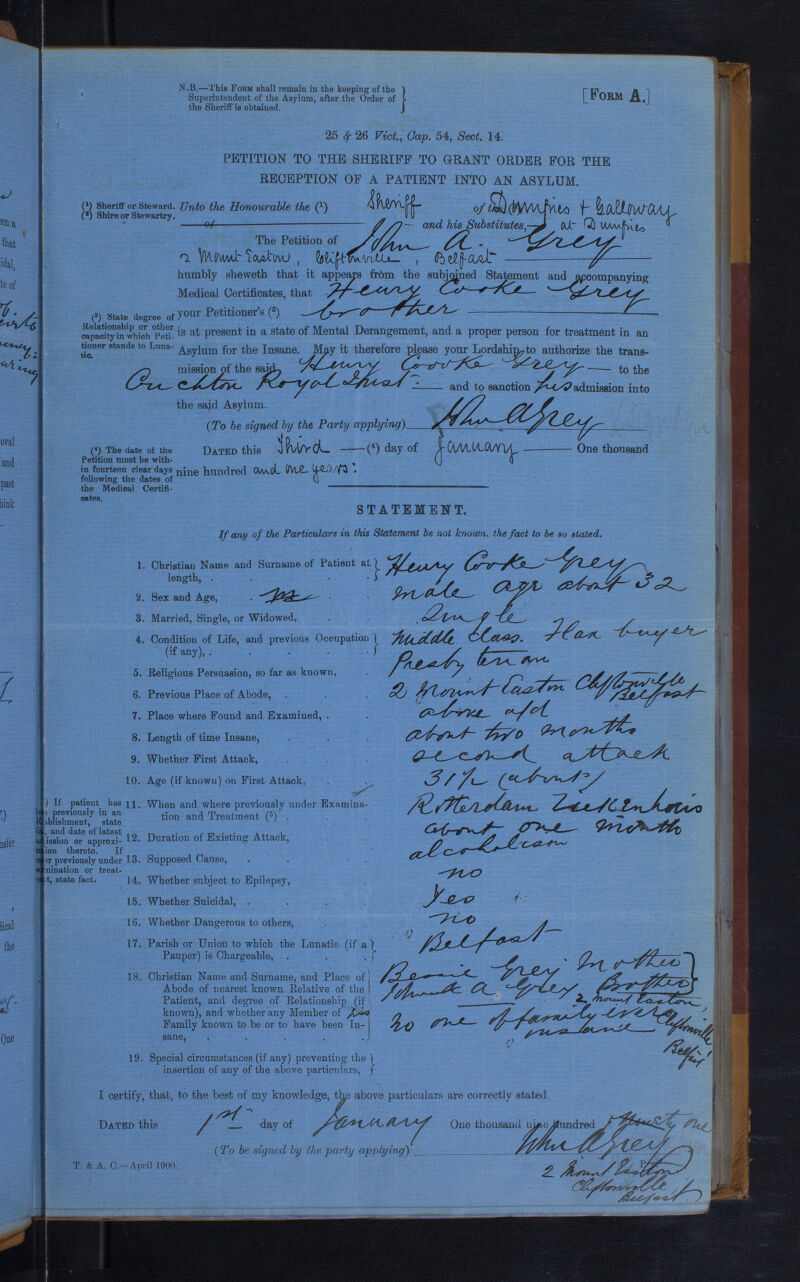 N.B.—This Form shall remain in the keeping of the
Superintendent of the Asylum, after the Order of
the Sheriff is obtained.
[Form A.]
25 & 26 Vict., Cap. 54, Sect. 14.
PETITION TO THE SHERIFF TO GRANT ORDER FOR THE
RECEPTION OF A PATIENT INTO AN ASYLUM.
(1) Sheriff or Steward.
(2) Shire or Stewartry.
Unto the Honourable the (1) Sheriff of the Dumfries & Galloway
of and his Substitutes, at Dumfries
The Petition of John A. Grey
2 Mount Easton, Cliftonville, Belfast
humbly sheweth that it appears from the subjoined Statement and accompanying
Medical Certificates, that Henry Cooke Grey
(3) State degree of
Relationship or other
capacity in which Peti-
tioner stands to Luna-
tic.
your Petitioner's (3) brother
is at present in a state of Mental Derangement, and a proper person for treatment in an
Asylum for the Insane. May it therefore please your Lordship to authorize the trans-
mission of the said Henry Cooke Grey to the
Crichton Royal Inst. and to sanction his admission into
the said Asylum.
(To be signed by the Party applying) John A Grey
(4) The date of the
Petition must be with-
in fourteen clear days
following the dates of
the Medical Certifi-
cates.
Dated this Third (4) day of January One thousand
nine hundred and one years.
STATEMENT.
If any of the Particulars in this Statement be not known, the fact to be so stated.
1. Christian Name and Surname of Patient at
length, Henry Cooke Grey
2. Sex and Age, male age about 32
3. Married, Single, or Widowed, Single
4. Condition of Life, and previous Occupation
(if any), Middle Class. Flax buyer
5. Religious Persuasion, so far as known, Presbyterian
6. Previous Place of Abode, 2 Mount Easton Cliftonville
Belfast
7. Place where Found and Examined, above a/d
8. Length of time Insane, about two months
9. Whether First Attack, second attack
10. Age (if known) on First Attack, 31½ (about)
) If patient has
previously in an
establishment, state
and date of latest
mission or approxi-
thereto. If
previously under
mination or treat-
t, state fact.
11. When and where previously under Examina-
tion and Treatment (5) Rotterdam
12. Duration of Existing Attack, about one month
13. Supposed Cause, alcoholism
14. Whether subject to Epilepsy, no
15. Whether Suicidal, Yes
16. Whether Dangerous to others, no
17. Parish or Union to which the Lunatic (if a
Pauper) is Chargeable, Belfast
18. Christian Name and Surname, and Place of
Abode of nearest known Relative of the
Patient, and degree of Relationship (if
known), and whether any Member of his
Family known to be or to have been In-
sane,
Bessie Grey Mother
John A Grey Brother
2 Mount Easton,
Cliftonville
Belfast
no one of family ever
insane
19. Special circumstances (if any) preventing the
insertion of any of the above particulars,
I certify, that, to the best of my knowledge, the above particulars are correctly stated.
Dated this 1st day of January One thousand nine hundred & one
(To be signed by the party applying) John A Grey
2 Mount Easton
Cliftonville
Belfast.
T. & A. C.—April 1900.